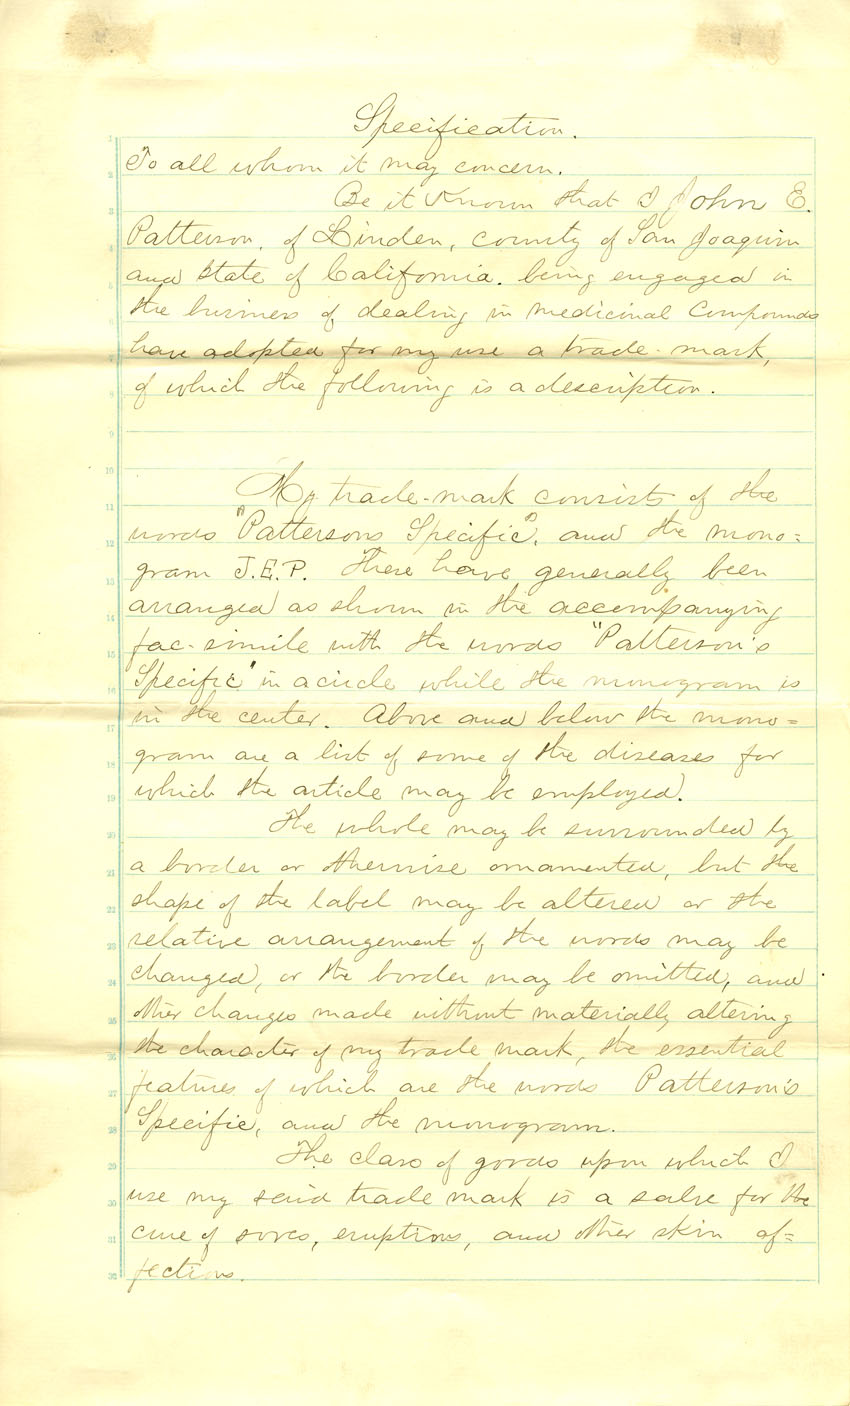 Specification.
To all whom it may concern.
Be it Known that I John E.
Patterson, of Linden, county of San Joaquin
and State of California. being engaged in
the business of dealing in medicinal Compounds
have adopted for my use a trade-mark,
of which the following is a description.
My trade-mark consists of the
words "Pattersons Specific", and the mono=
gram J.E.P. These have generally been
arranged as shown in the accompanying
fac-simile with the words "Patterson's
Specific" in a circle while the monogram is
in the center. Above and below the mono=
gram are a list of some of the diseases for
which the article may be employed.
The whole may be surrounded by
a border or otherwise ornamented, but the
shape of the label may be altered or the
relative arrangement of the words may be
changed, or the border may be omitted, and
other changes made without materially altering
the character of my trade mark, the essential
features of which are the words Patterson's
Specific, and the monogram.
The class of goods upon which I
use my said trade mark is a salve for the
cure of sores, eruptions, and other skin af=
fections.